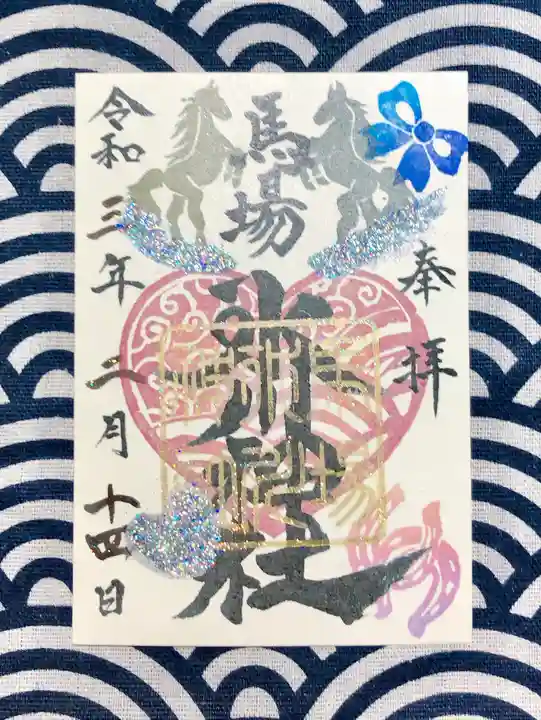 奉拝
馬場
氷川神社
令和三年二月十四日